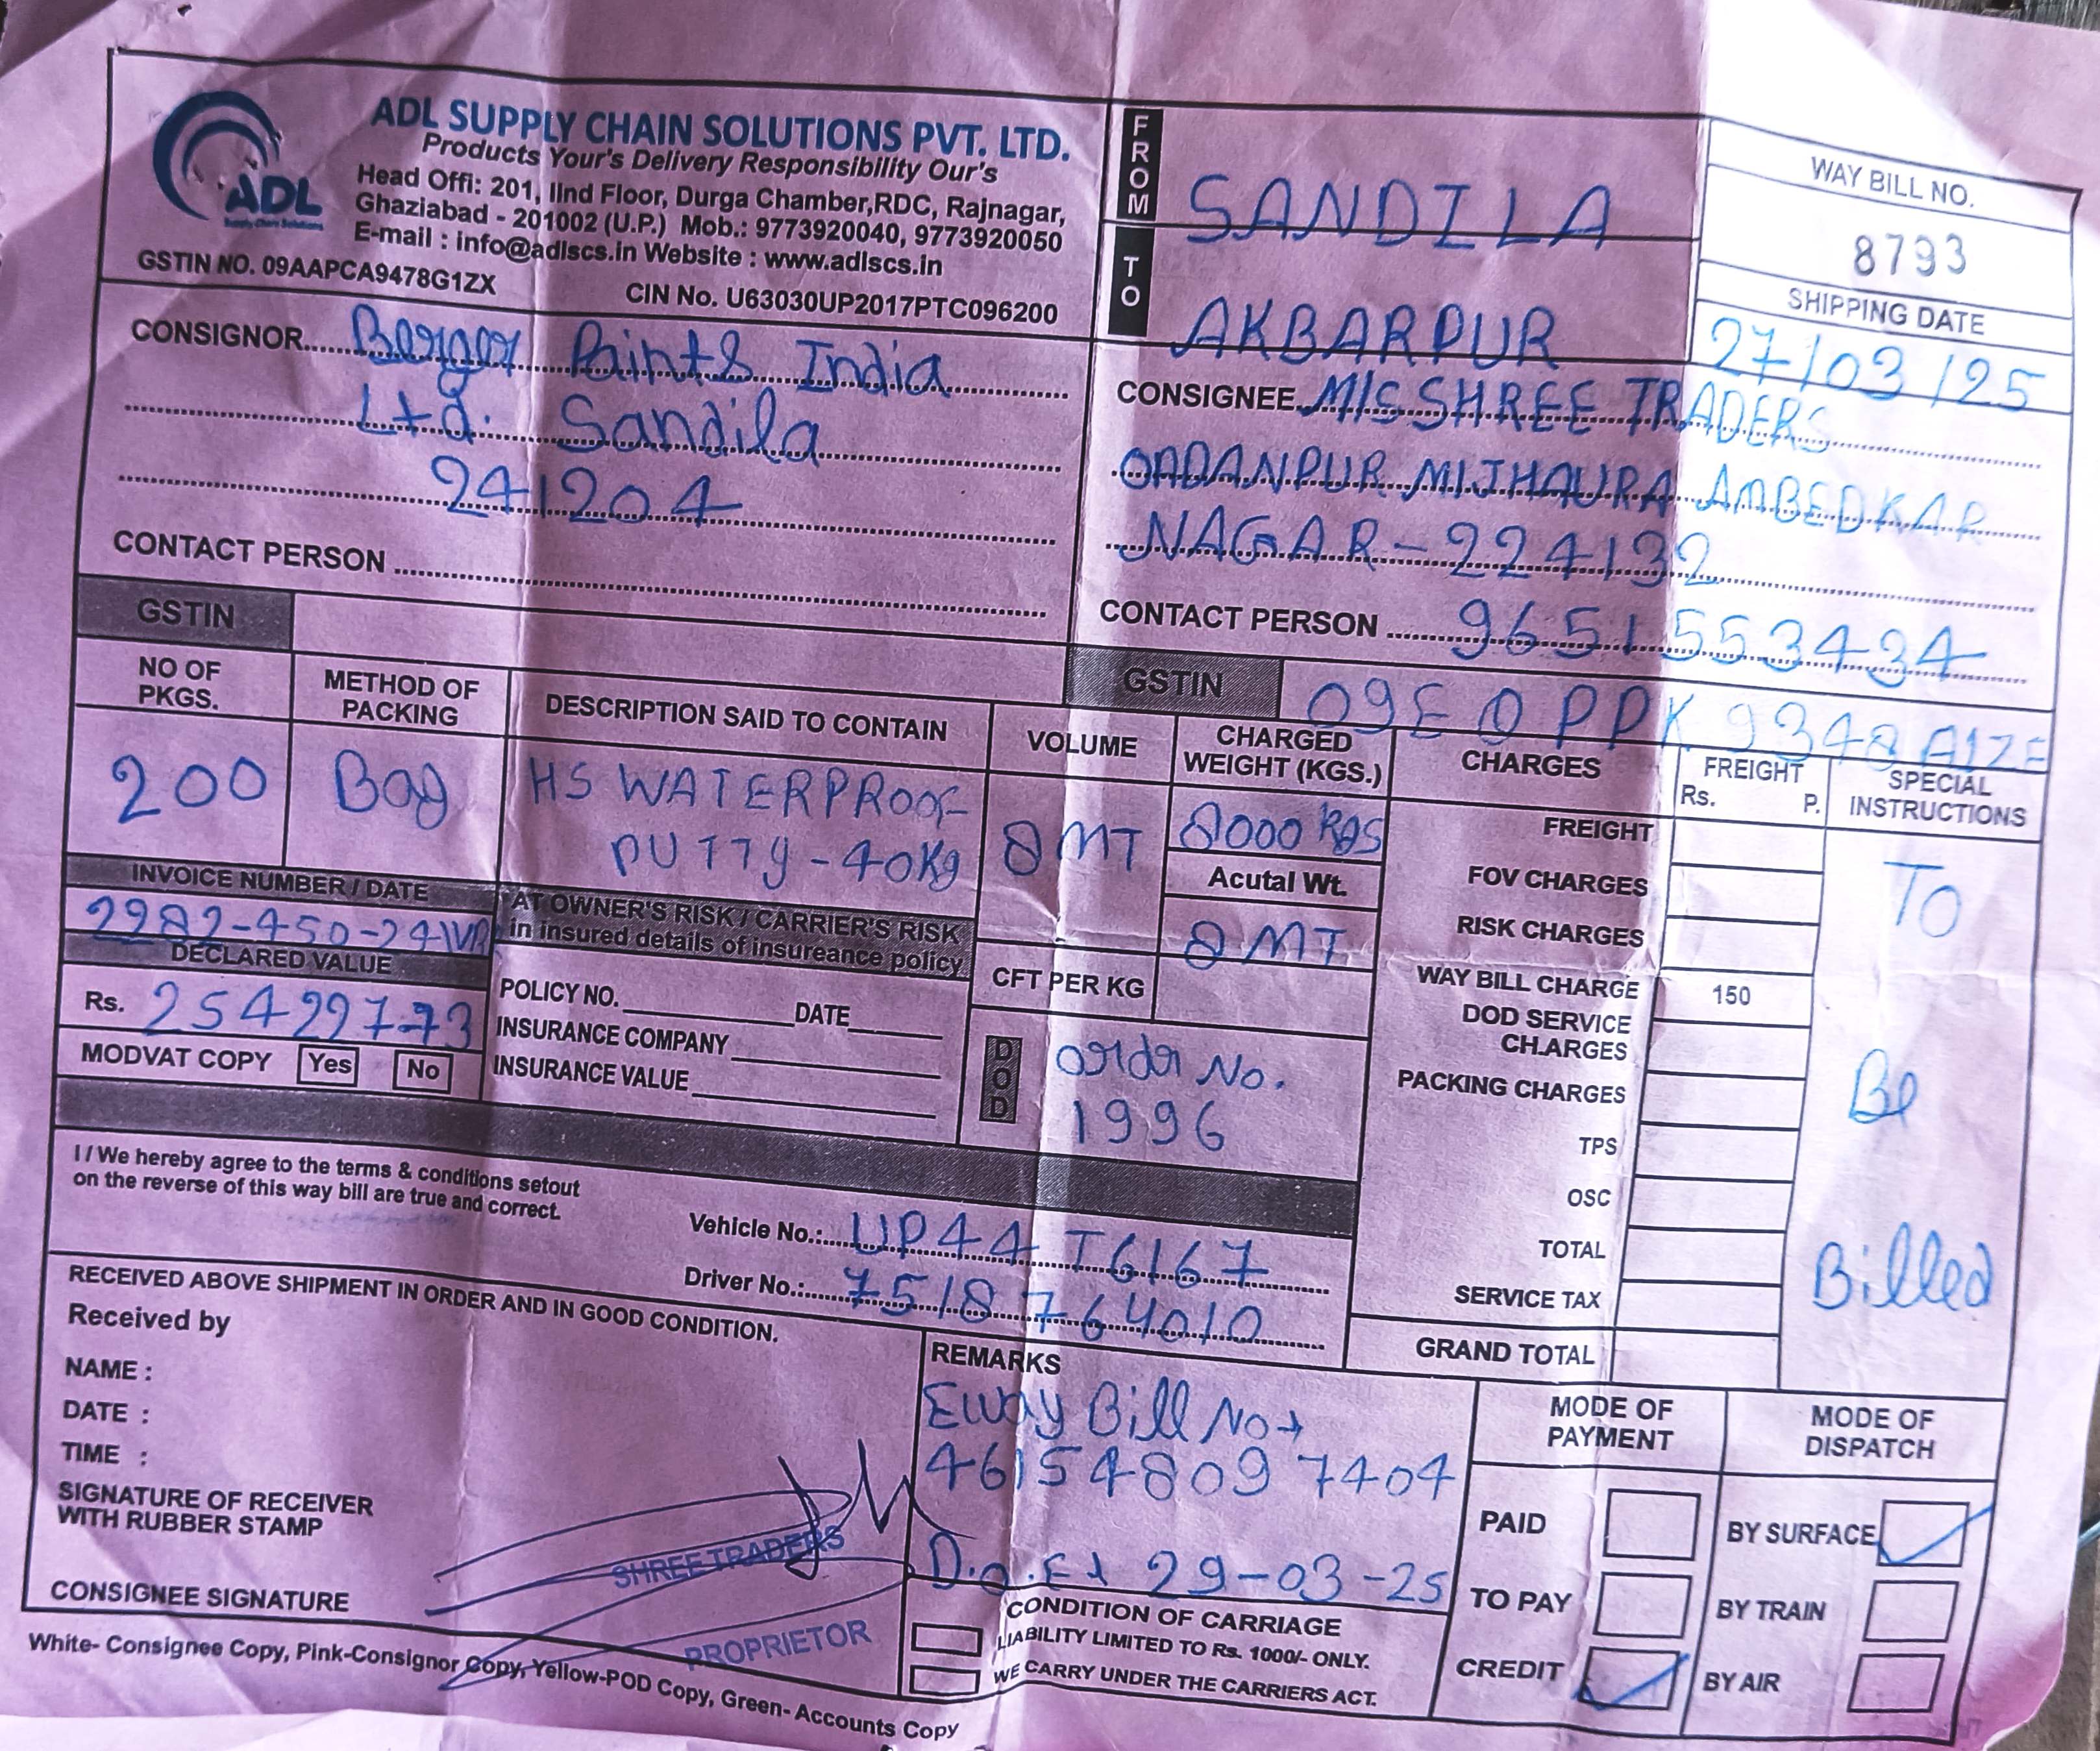 ADL SUPPLY CHAIN SOLUTIONS PVT. LTD.
Products Your's Delivery Responsibility Our's
ADL
Supply Chain Solutions
Head Offi: 201, IInd Floor, Durga Chamber,RDC, Rajnagar,
Ghaziabad - 201002 (U.P.) Mob.: 9773920040, 9773920050
E-mail : info@adlscs.in Website : www.adlscs.in
GSTIN NO. 09AAPCA9478G1ZX CIN No. U63030UP2017PTC096200
FROM SANDILA
TO AKBARPUR
WAY BILL NO.
8793
SHIPPING DATE
27/03/25
CONSIGNOR Berger Paints India
Ltd. Sandila
241204
CONTACT PERSON
GSTIN
CONSIGNEE M/S SHREE TRADERS
MIJHAURA AMBEDKAR
NAGAR-224132
CONTACT PERSON 9651553434
GSTIN 09EOPPK9348A1ZE
NO OF PKGS.
200
METHOD OF PACKING
Bag
DESCRIPTION SAID TO CONTAIN
HS WATERPROOF
PUTTY-40Kg
VOLUME
8MT
CHARGED WEIGHT (KGS.)
8000 Kgs
Acutal Wt.
8 MT
CFT PER KG
INVOICE NUMBER / DATE
DECLARED VALUE
Rs. 254297.73
MODVAT COPY Yes No
AT OWNER'S RISK / CARRIER'S RISK
in insured details of insureance policy
POLICY NO. DATE
INSURANCE COMPANY
INSURANCE VALUE
DOD
Order No.
1996
CHARGES
FREIGHT
Rs. P.
FREIGHT
FOV CHARGES
RISK CHARGES
WAY BILL CHARGE 150
DOD SERVICE CHARGES
PACKING CHARGES
TPS
OSC
TOTAL
SERVICE TAX
GRAND TOTAL
SPECIAL INSTRUCTIONS
To
Be
Billed
I / We hereby agree to the terms & conditions setout
on the reverse of this way bill are true and correct.
Vehicle No.: UP44 T6167
Driver No.: 7518764010
RECEIVED ABOVE SHIPMENT IN ORDER AND IN GOOD CONDITION.
Received by
NAME :
DATE :
TIME :
SIGNATURE OF RECEIVER
WITH RUBBER STAMP
SHREE TRADERS
PROPRIETOR
CONSIGNEE SIGNATURE
REMARKS
Eway Bill No
461548097404
29-03-25
CONDITION OF CARRIAGE
LIABILITY LIMITED TO Rs. 1000/- ONLY.
WE CARRY UNDER THE CARRIERS ACT.
MODE OF PAYMENT
PAID
TO PAY
CREDIT
MODE OF DISPATCH
BY SURFACE
BY TRAIN
BY AIR
White- Consignee Copy, Pink-Consignor Copy, Yellow-POD Copy, Green- Accounts Copy